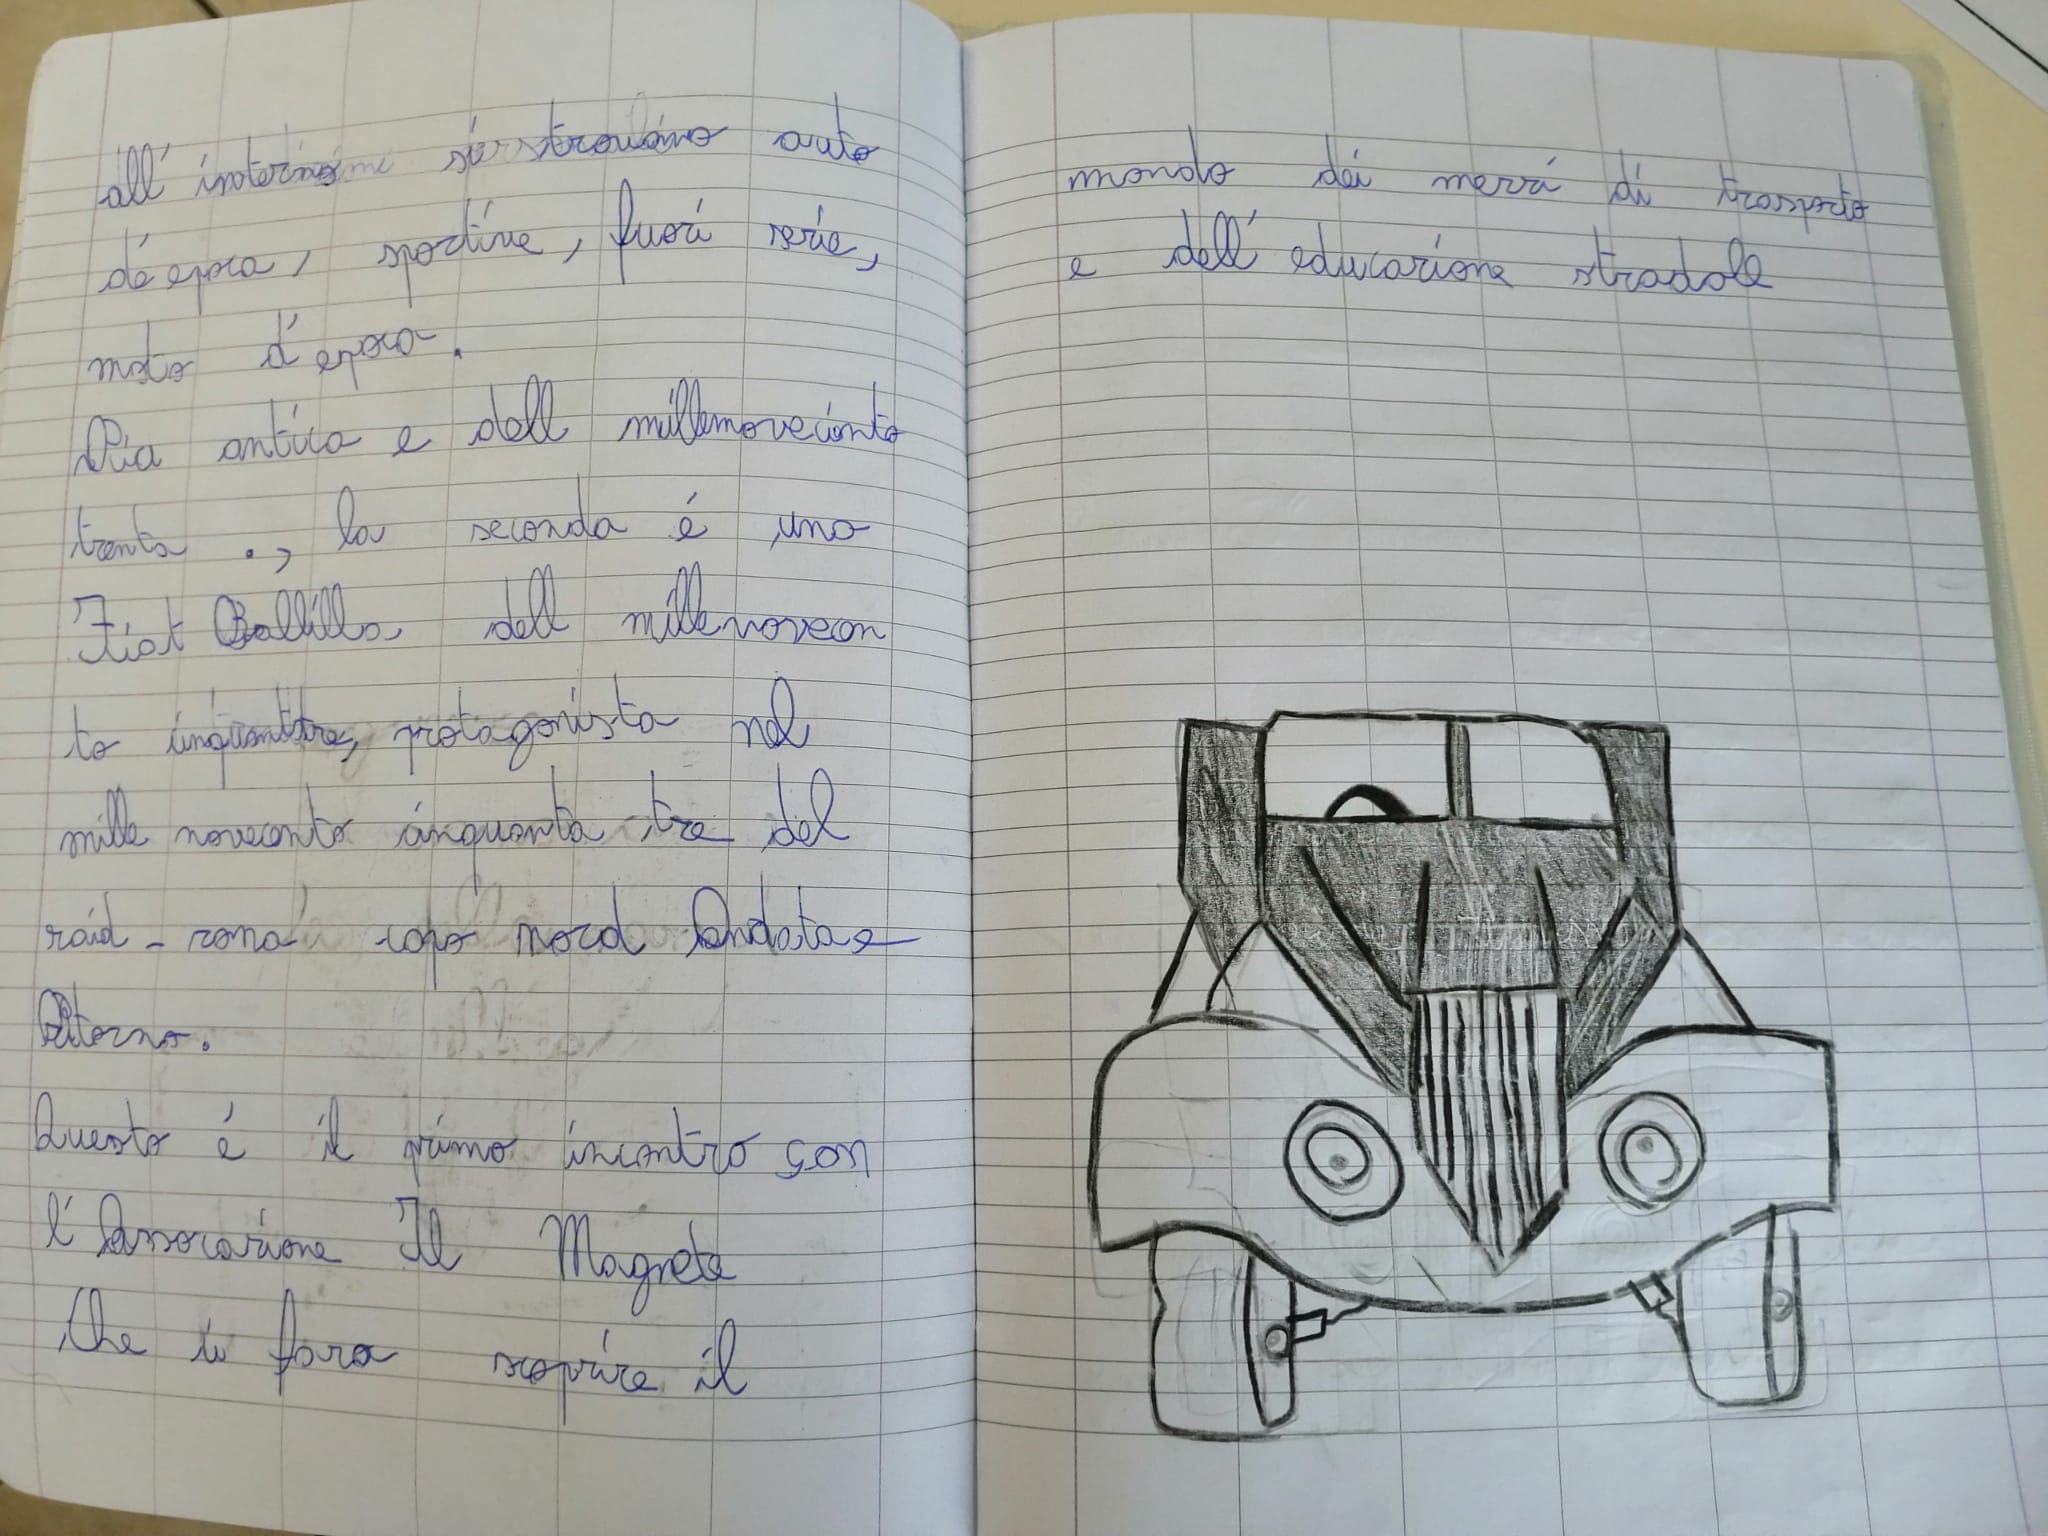 all'interno si trovano auto
d'epoca, sportive, fuori serie,
moto d'epoca.
Più antica e dell millenoveciento
trenta ., la seconda é una
Fiat Ballilla dell millenovecen
to cinquanttre, protagonista nel
mille novecento cinquanta tre del
raid - roma capo nord Andata e
Ritorno.
Questo é il primo incontro con
l'Associazione Il Magnete
che ci fara scoprire il
mondo dei mezzi di trasporto
e dell'educazione stradale